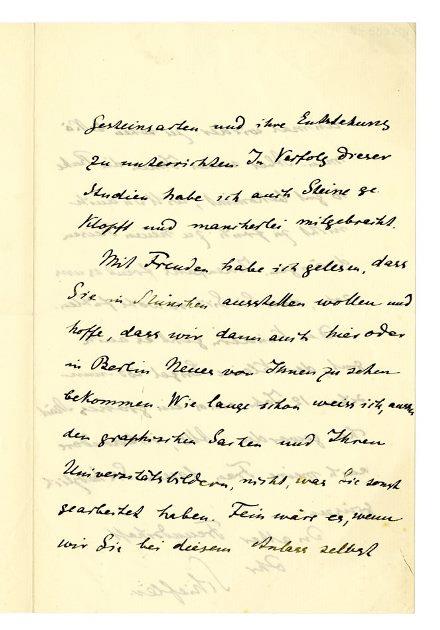 Gesteinsarten und ihre Entstehung
zu unterrichten. In Verfolg dieser
Studien habe ich auch Steine ge
klopft und mancherlei mitgebracht.
Mit Freuden habe ich gelesen, dass
Sie in München ausstellen wollen und
hoffe, dass wir dann auch hier oder
in Berlin Neues von Ihnen zu sehen
bekommen. Wie lange schon weiss ich, ausser
den graphischen Sachen und Ihren
Universitätsbildern, nicht, was Sie sonst
gearbeitet haben. Fein wäre es, wenn
wir Sie bei diesem Anlass selbst